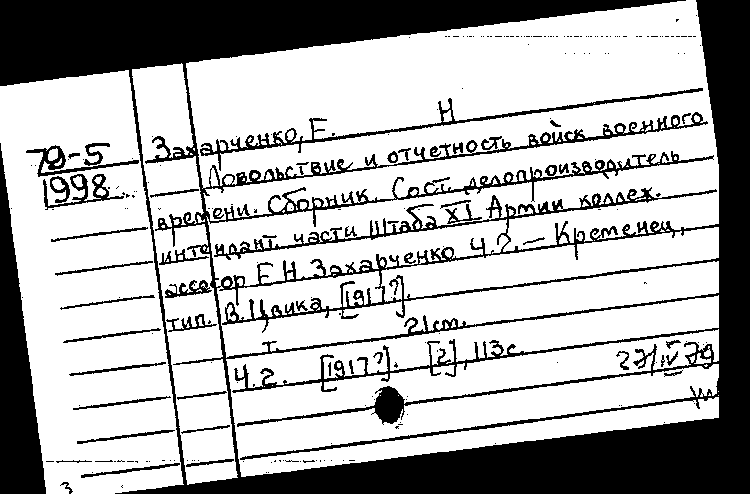 Н
79-5
1998
Захарченко, Е.
Довольствие и отчетность войск военного
времени. Сборник. Сост. делопроизводитель
интендант. части Штаба XI Армии коллеж.
ассесор Е.Н. Захарченко Ч.2. — Кременец,
тип. В. Цвика, [1917?].
т. 21 см.
Ч.2. [1917?]. [2], 113 с.
27/IV 79
3